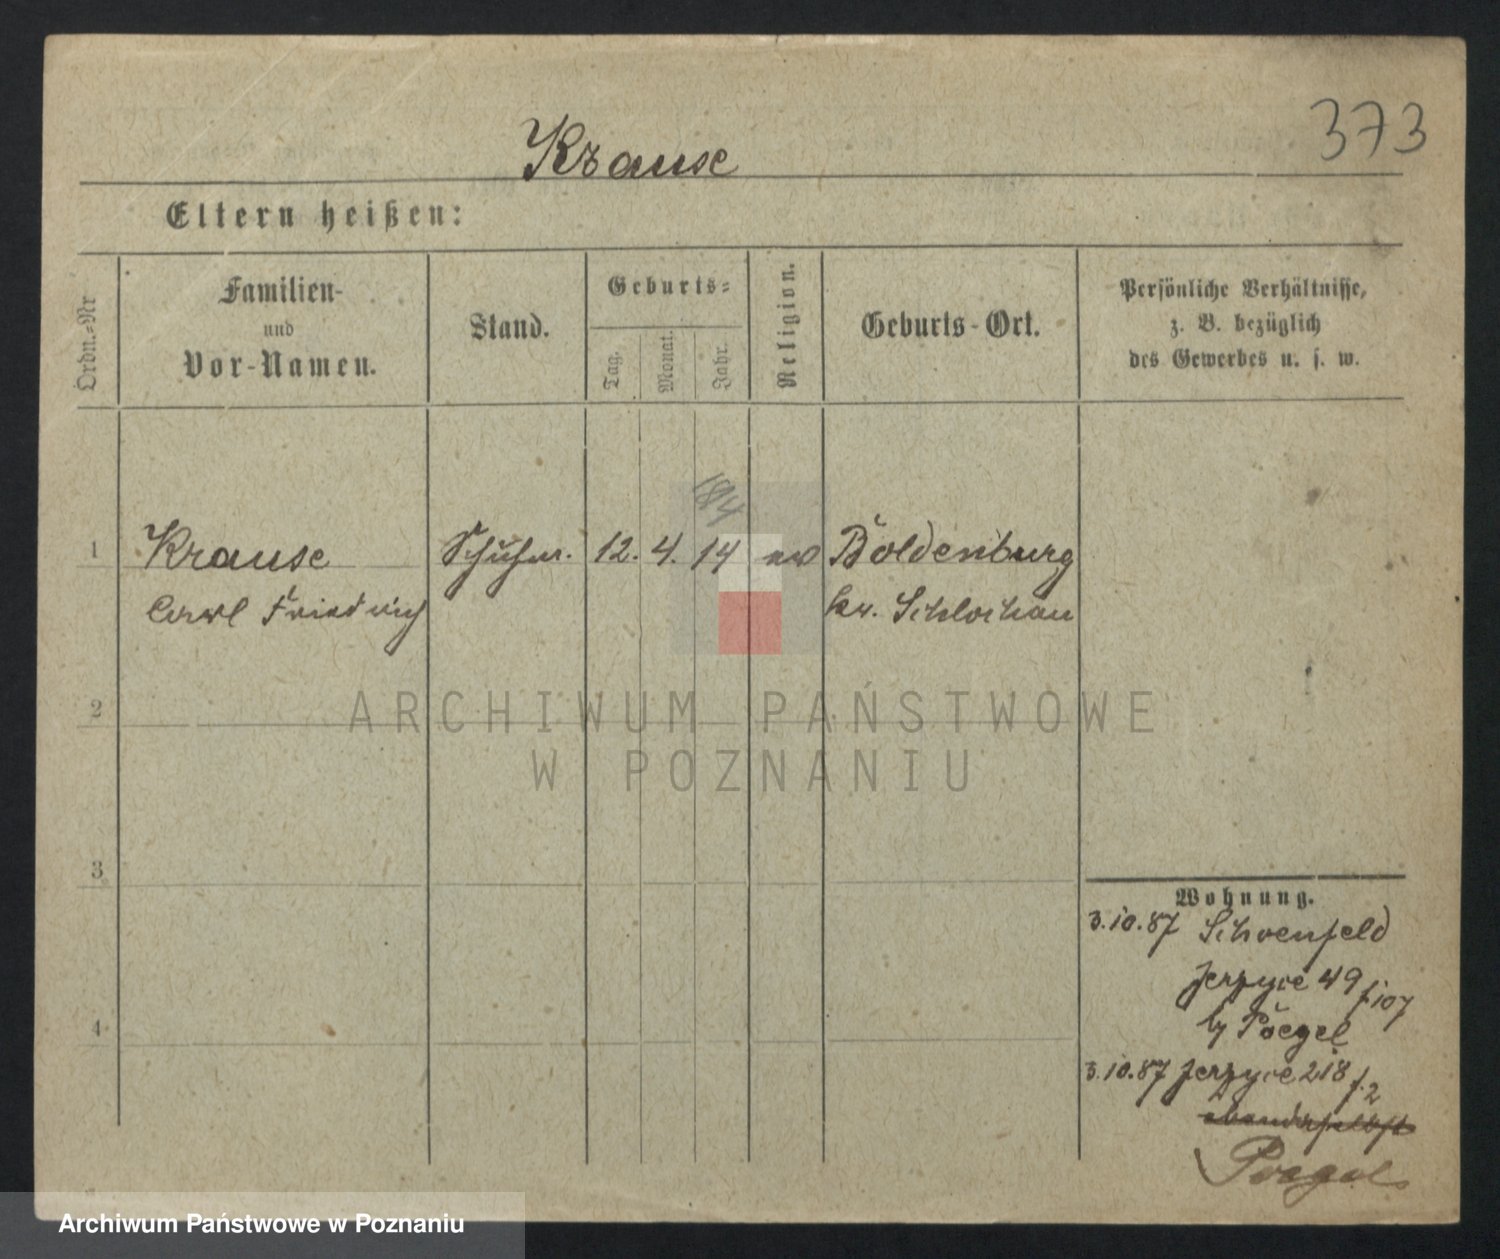 373
Krause
Eltern heißen:
Ordn.-Nr
Familien-
und
Vor-Namen.
Stand.
Geburts-
Tag.
Monat.
Jahr.
Religion.
Geburts-Ort.
Persönliche Verhältnisse,
z. B. bezüglich
des Gewerbes u. s. w.
1 Krause Schuhm. 12. 4. 14 ev Boldenburg
Carl Friedrich kr. Schlochau
2
ARCHIWUM PAŃSTWOWE
W POZNANIU
3
Wohnung.
3.10.87 Schoenfeld
Jerzyce 49 f 107
by Poegel
4
3.10.87 Jerzyce 218 f. 2
ebendaselbst
Poegel
Archiwum Państwowe w Poznaniu